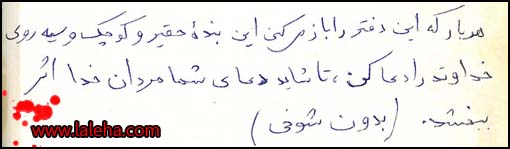 هر بار که این دفتر را باز می کنی این بندهٔ حقیر و کوچک و سیه روی
خداوند را دعا کن، تا شاید دعای شما مردان خدا اثر
ببخشد. (بدون شوخی)
www.laleha.com